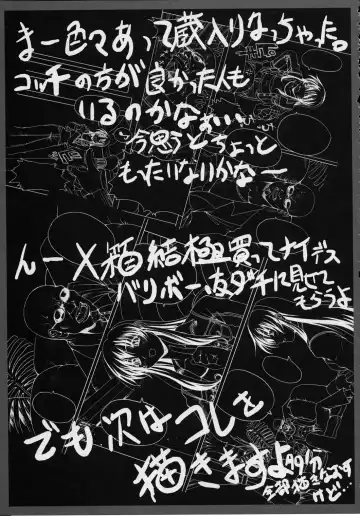 まー色々あって蔵入りなっちゃった。
コッチの方が良かった人も
いるのかなぁぃぃ
そう思うとちょっと
もったいないかなー
んー X箱 結極買ってナイデス
バリボー 友ダチに見せて
もらうよ
でも次はコレを
描きますよ 多分
全部描きなおす
けど…